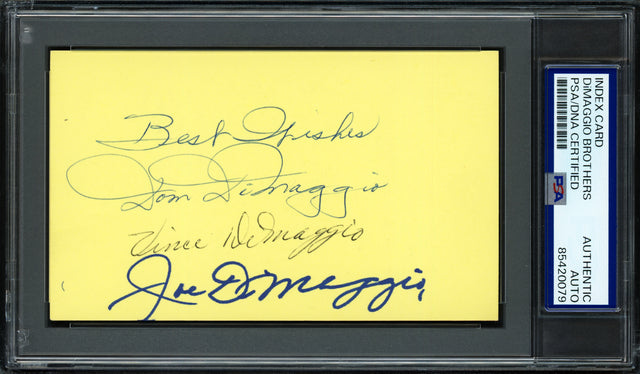 Best Wishes
Dom DiMaggio
Vince DiMaggio
Joe DiMaggio
INDEX CARD
DiMAGGIO BROTHERS
PSA/DNA CERTIFIED
PSA
AUTHENTIC
AUTO
85420079